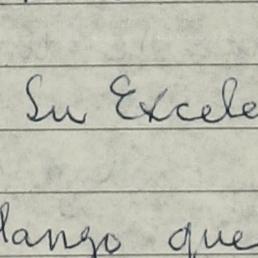 Su Excele
lango que